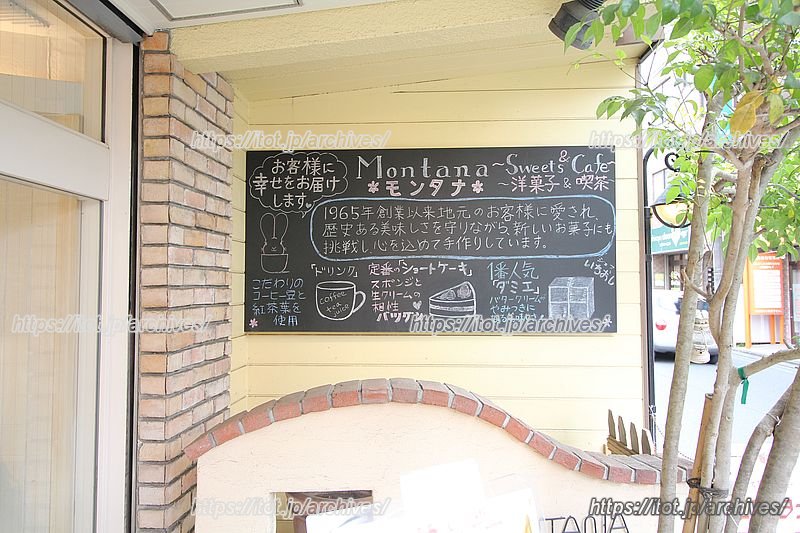 お客様に
幸せをお届け
します。
Montana ~Sweets & Cafe~
*モンタナ* ~洋菓子&喫茶
1965年創業以来地元のお客様に愛され、
歴史ある美味しさを守りながら、新しいお菓子にも
挑戦し心を込めて手作りしています。
こだわりの
コーヒー豆と
紅茶葉を
使用
「ドリンク」
coffee
tea
juice
定番の「ショートケーキ」
スポンジと
生クリームの
相性
バツグン
1番人気
「ダミエ」
バタークリームが
やみつきに
https://itot.jp/archives/
https://itot.jp/archives/
https://itot.jp/archives/
https://itot.jp/archives/
https://itot.jp/archives/
https://itot.jp/archives/
TANA